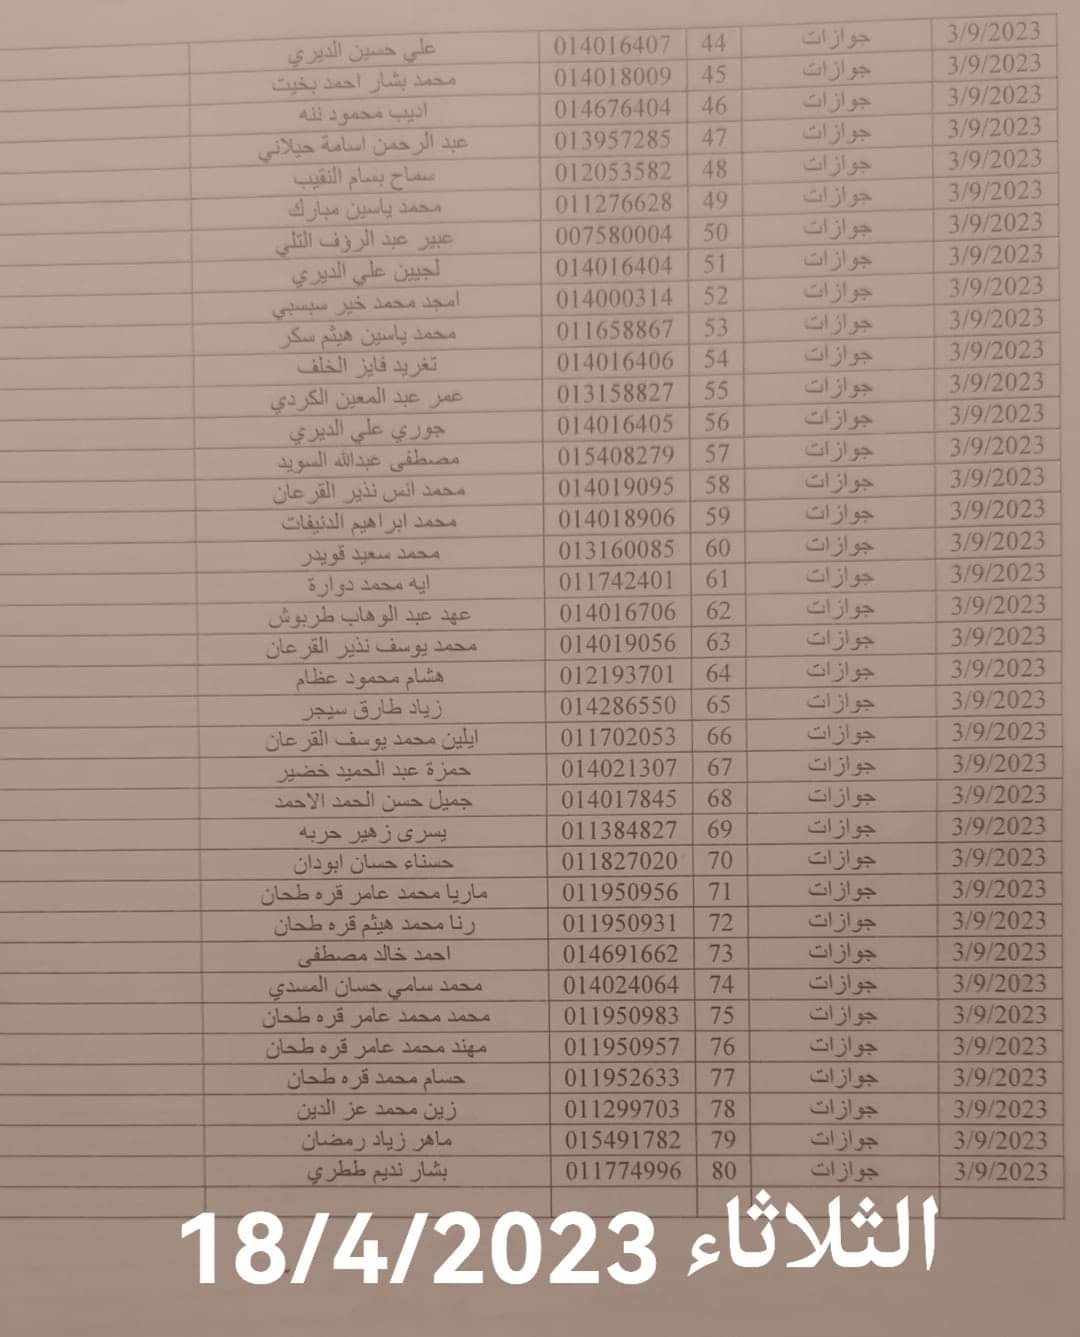 3/9/2023 جوازات 44 014016407 علي حسين الديري
3/9/2023 جوازات 45 014018009 محمد بشار احمد بخيت
3/9/2023 جوازات 46 014676404 اديب محمود ننه
3/9/2023 جوازات 47 013957285 عبد الرحمن اسامة حيلاني
3/9/2023 جوازات 48 012053582 سماح بسام النقيب
3/9/2023 جوازات 49 011276628 محمد ياسين مبارك
3/9/2023 جوازات 50 007580004 عبير عبد الرؤف التلي
3/9/2023 جوازات 51 014016404 لجيين علي الديري
3/9/2023 جوازات 52 014000314 امجد محمد خير سبسبي
3/9/2023 جوازات 53 011658867 محمد ياسين هيثم سكر
3/9/2023 جوازات 54 014016406 تغريد فايز الخلف
3/9/2023 جوازات 55 013158827 عمر عبد المعين الكردي
3/9/2023 جوازات 56 014016405 جوري علي الديري
3/9/2023 جوازات 57 015408279 مصطفى عبدالله السويد
3/9/2023 جوازات 58 014019095 محمد انس نذير القرعان
3/9/2023 جوازات 59 014018906 محمد ابراهيم الدنيفات
3/9/2023 جوازات 60 013160085 محمد سعيد قويدر
3/9/2023 جوازات 61 011742401 ايه محمد دوارة
3/9/2023 جوازات 62 014016706 عهد عبد الوهاب طربوش
3/9/2023 جوازات 63 014019056 محمد يوسف نذير القرعان
3/9/2023 جوازات 64 012193701 هشام محمود عظام
3/9/2023 جوازات 65 014286550 زياد طارق سيجر
3/9/2023 جوازات 66 011702053 ايلين محمد يوسف القرعان
3/9/2023 جوازات 67 014021307 حمزة عبد الحميد خضير
3/9/2023 جوازات 68 014017845 جميل حسن الحمد الاحمد
3/9/2023 جوازات 69 011384827 يسرى زهير حربه
3/9/2023 جوازات 70 011827020 حسناء حسان ابودان
3/9/2023 جوازات 71 011950956 ماريا محمد عامر قره طحان
3/9/2023 جوازات 72 011950931 رنا محمد هيثم قره طحان
3/9/2023 جوازات 73 014691662 احمد خالد مصطفى
3/9/2023 جوازات 74 014024064 محمد سامي حسان المسدي
3/9/2023 جوازات 75 011950983 محمد محمد عامر قره طحان
3/9/2023 جوازات 76 011950957 مهند محمد عامر قره طحان
3/9/2023 جوازات 77 011952633 حسام محمد قره طحان
3/9/2023 جوازات 78 011299703 زين محمد عز الدين
3/9/2023 جوازات 79 015491782 ماهر زياد رمضان
3/9/2023 جوازات 80 011774996 بشار نديم ططري
الثلاثاء 18/4/2023